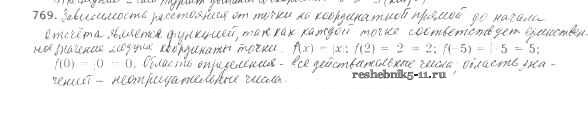 769. Зависимость расстояния от точки на координатной прямой до начала
отсчета является функцией, так как каждой точке соответствует единствен-
ное значение модуля координаты точки. f(x) = |x|; f(2) = 2 = 2; f(-5) = |-5 = 5;
f(0) = 0 = 0. Область определения - все действительные числа, область зна-
чений - неотрицательные числа.
reshebnik5-11.ru